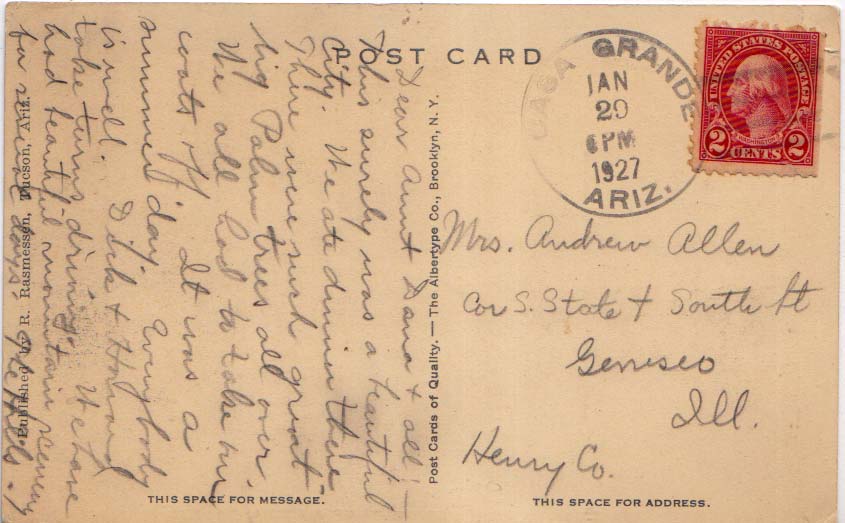 POST CARD
CASA GRANDE
JAN
29
6 PM
1927
ARIZ.
UNITED STATES POSTAGE
WASHINGTON
2 CENTS 2
Dear Aunt Dana & all: —
This surely was a beautiful
City. We ate dinner there
There were such great
big Palm trees all over.
We all had to take our
coats off. It was a
summer day. Everybody
is well. Dick & Howard
take turns driving. We have
had beautiful mountain scenery
for several days.
Mrs. Andrew Allen
Cor S. State & South St
Geneseo
Ill.
Henry Co.
Post Cards of Quality. — The Albertype Co., Brooklyn, N. Y.
Published by R. Rasmessen, Tucson, Ariz.
THIS SPACE FOR MESSAGE.
THIS SPACE FOR ADDRESS.